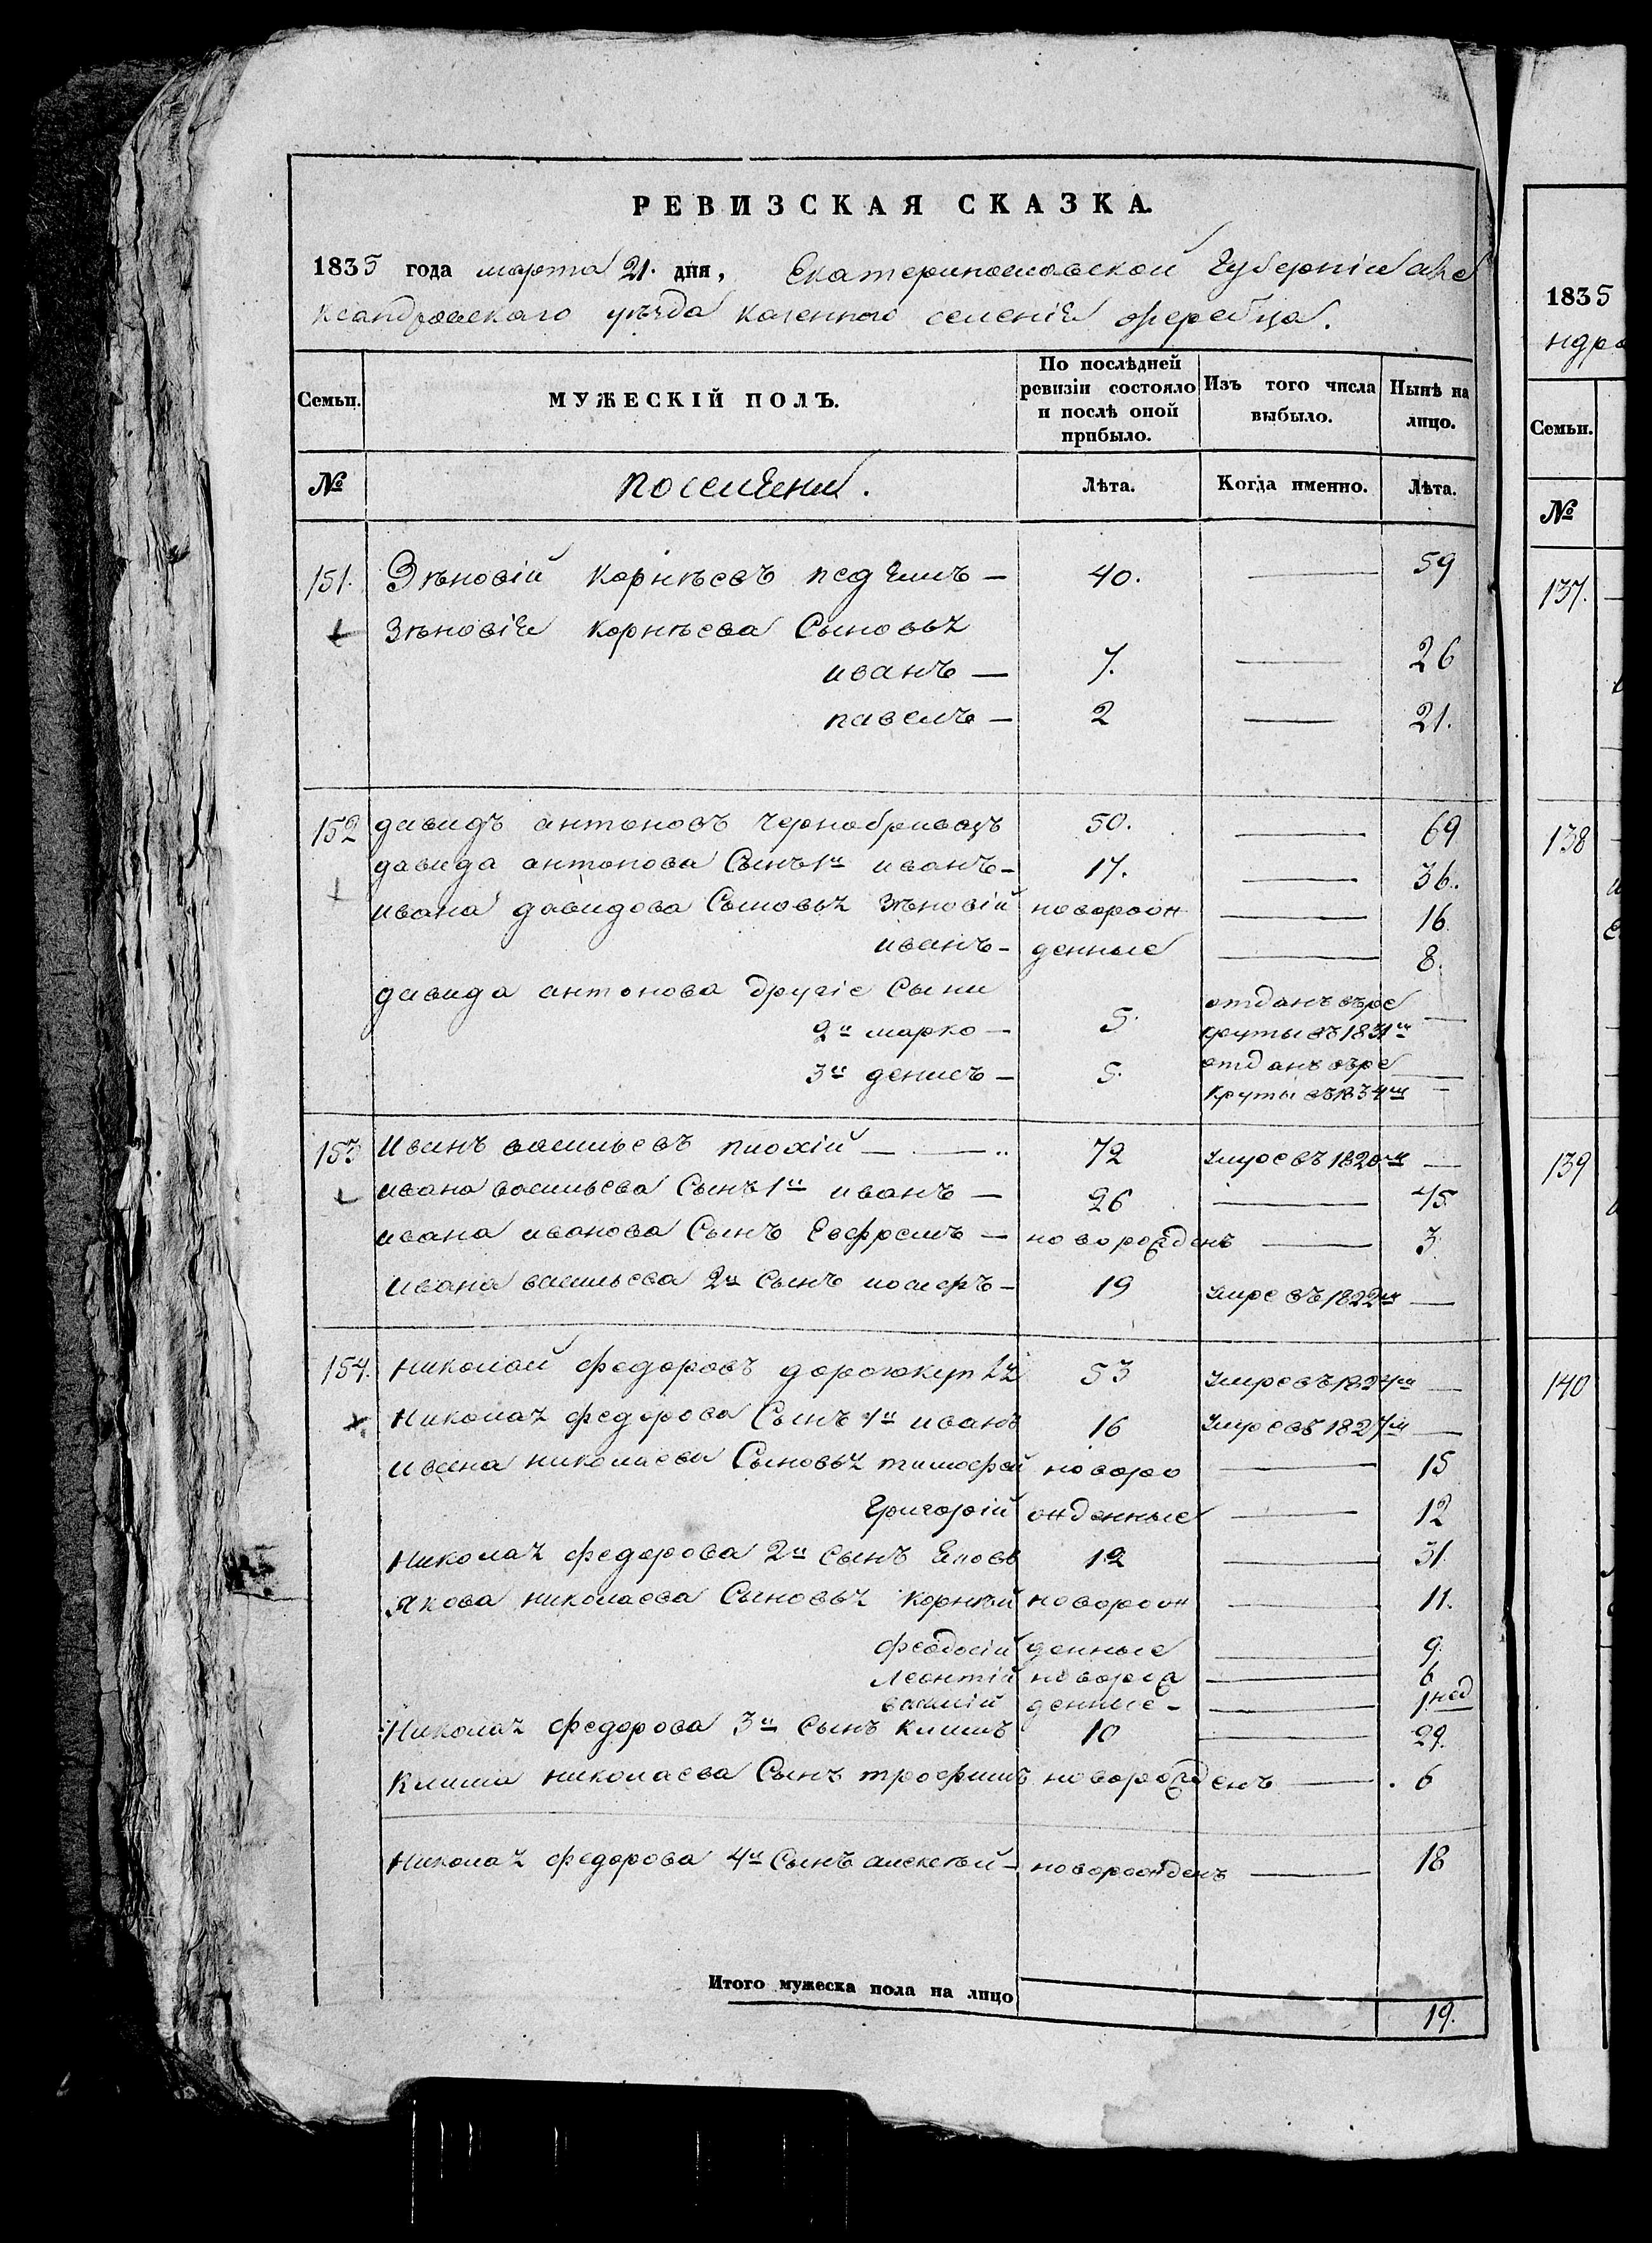 РЕВИЗСКАЯ СКАЗКА.
1835 года марта 21. дня, Екатеринославской Губерніи але
ксандровскаго уѣзда казенного селенія жеребца.
Семьи.
МУЖЕСКІЙ ПОЛЪ.
По послѣдней ревизіи состояло и послѣ оной прибыло.
Изъ того числа выбыло.
Нынѣ на лицо.
№
поселяни.
Лѣта.
Когда именно.
Лѣта.
151. Зѣновій Корнѣевъ — 40. — 59
Зѣновія Корнѣева Сыновья
иванъ — 7. — 26
павелъ — 2 — 21.
152 давидъ антоновъ Чернобривецъ 50. — 69
давида антонова Сынъ 1й иванъ — 17. — 36.
ивана давидова Сыновья Зѣновій новорож — 16
иванъ — денные — 8.
давида антонова другіе Сыни
2й марко — 5. отданъ въ ре
круты въ 1831м —
3й денисъ — 5. отданъ въ ре
круты въ 1834м —
153 Иванъ васильевъ плохій — 72 умре въ 1820м —
ивана васильева Сынъ 1й иванъ — 26 — 45
ивана иванова Сынъ Евфремъ — новорожденъ — 3
ивана васильева 2й Сынъ иосифъ — 19 умре въ 1822м —
154. николай федоровъ 53 умре въ 1824м —
Николая федорова Сынъ 1й иванъ 16 умре въ 1827м —
ивана николаева Сыновья тимофей новоро — 15
Григорій жденные — 12
Николая федорова 2й Сынъ Яковъ 12 — 31.
Якова николаева Сыновья Корнѣй новорож — 11.
феодосій денные — 9.
Леонтій новорож — 6
василій денные — 1 нед
Николая федорова 3й Сынъ климъ 10 — 29.
Клима николаева Сынъ трофимъ новорожденъ — 6
Николая федорова 4й Сынъ алексѣй — новорожденъ — 18
Итого мужеска пола на лицо
19.
1835
ндро
Семьи.
№
137.
138
139
140